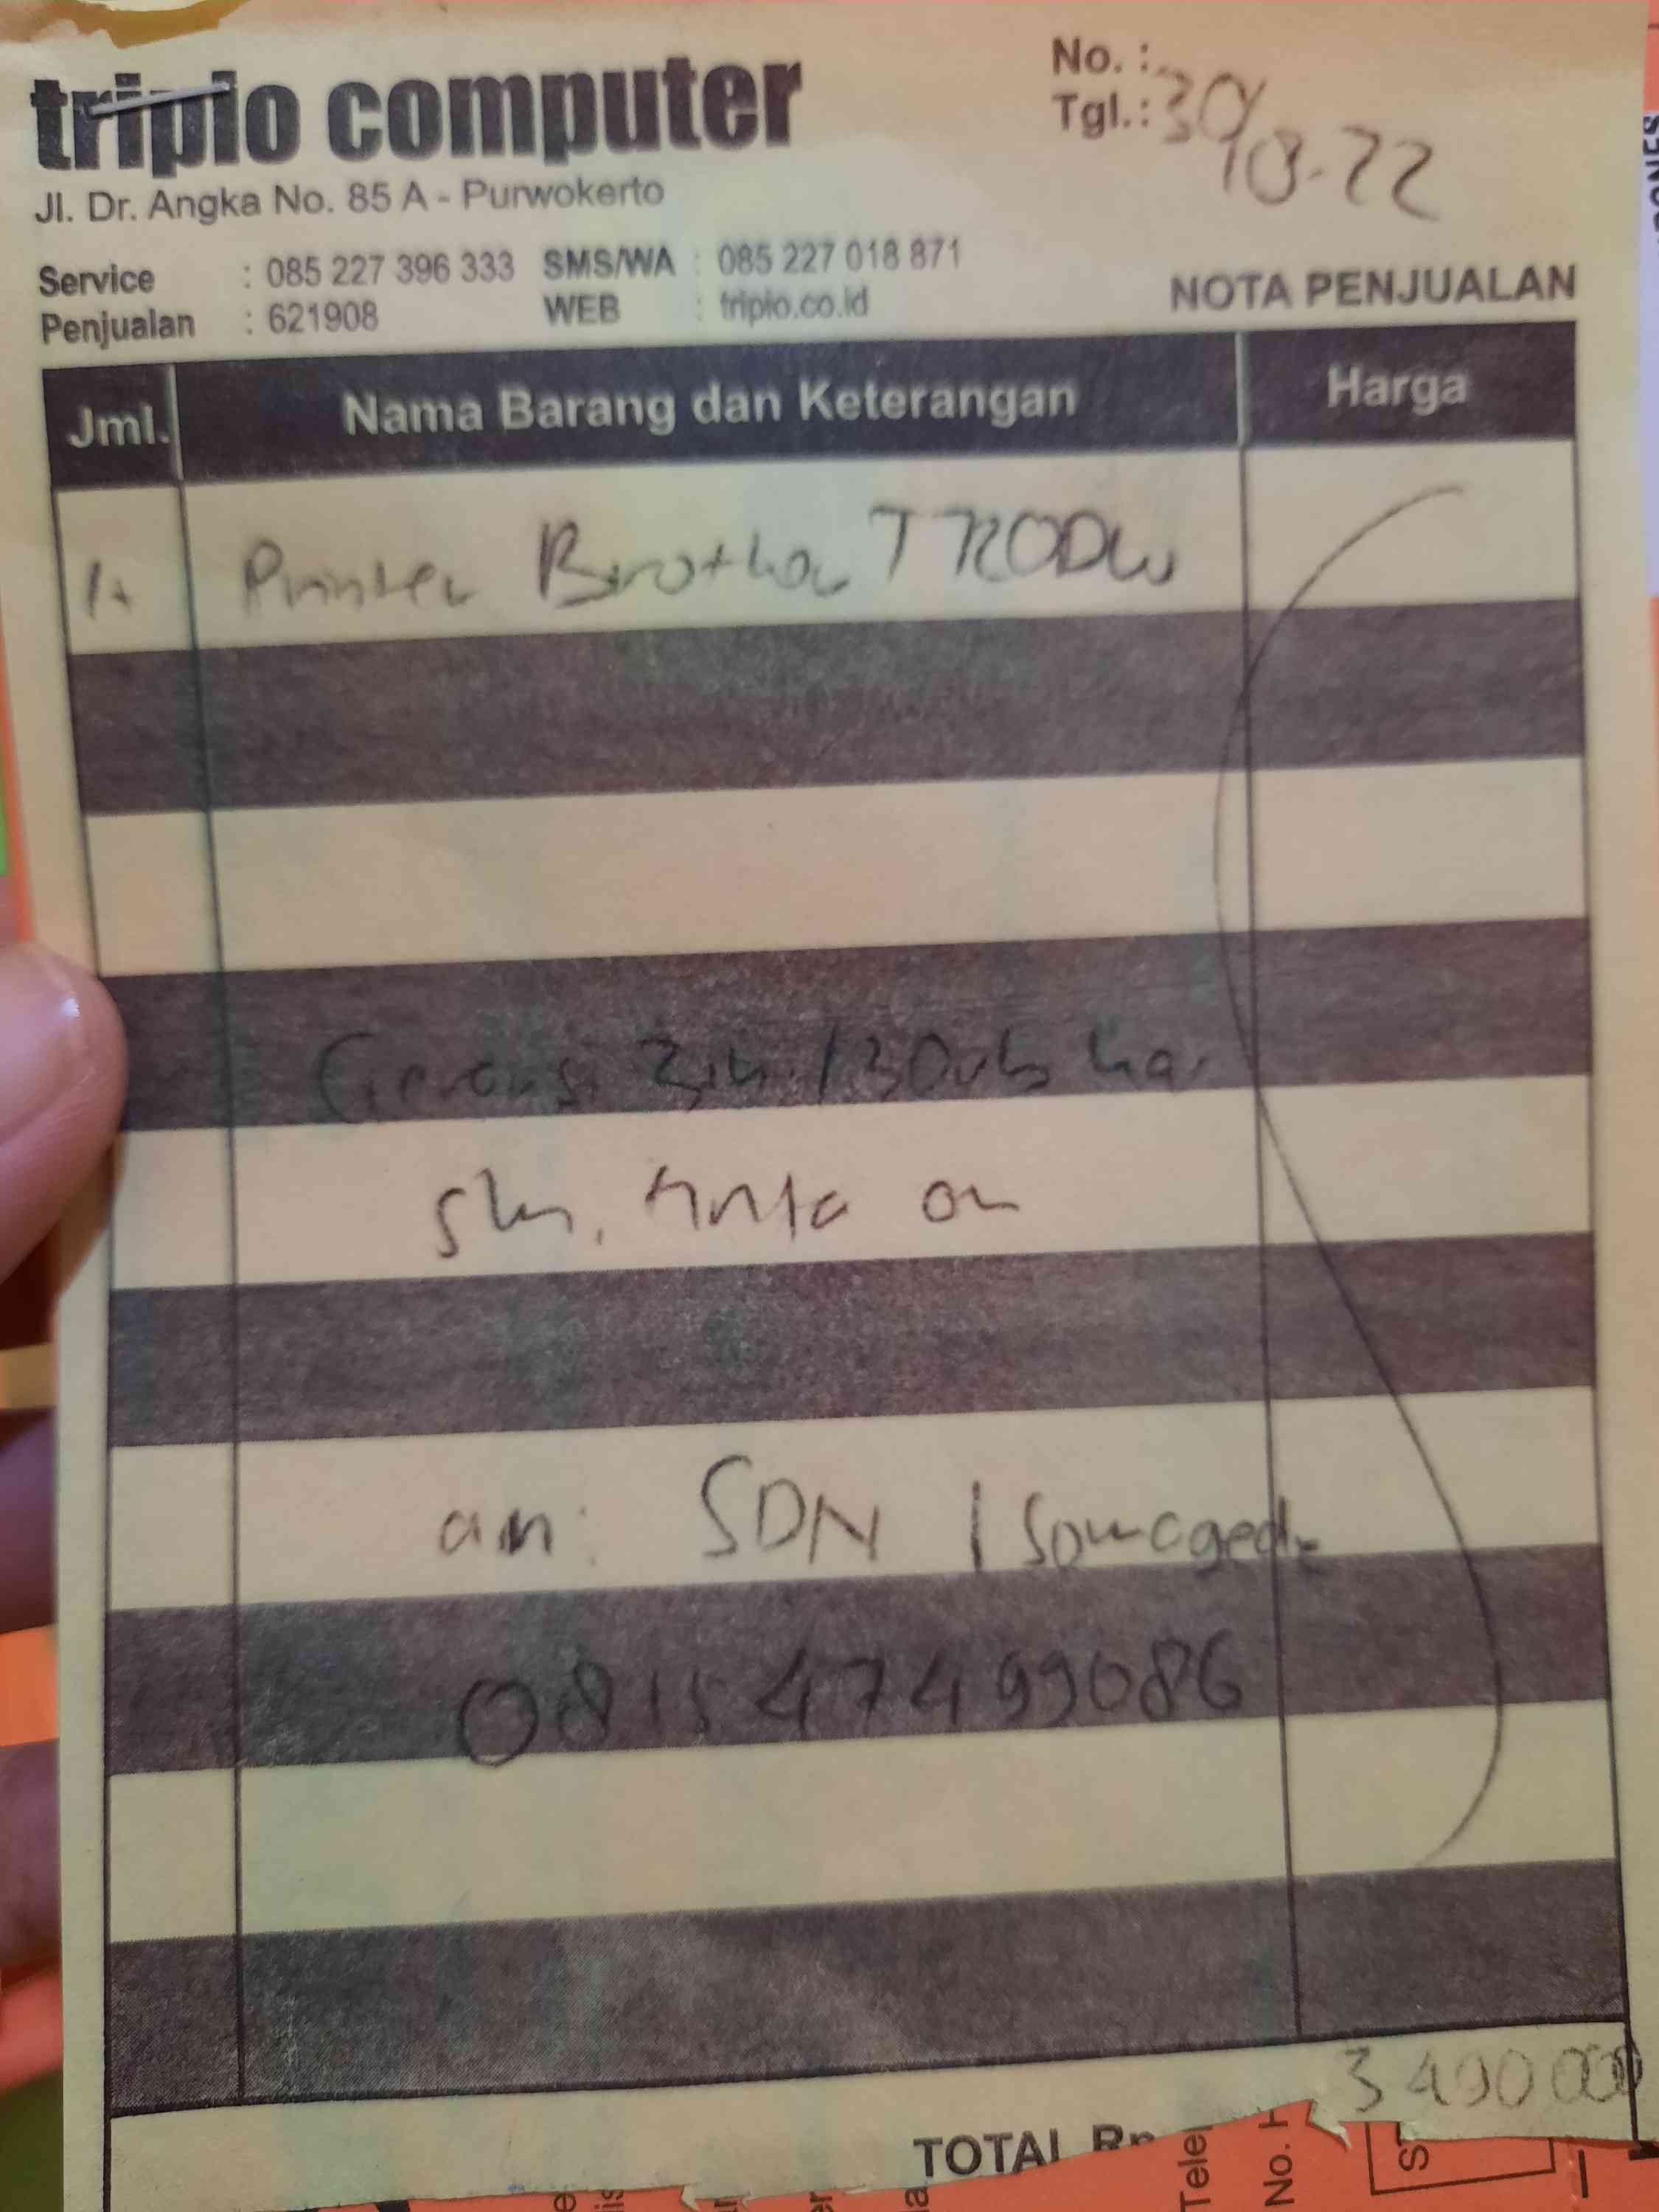 triplo computer
No. :
Tgl. : 30/10-22
Jl. Dr. Angka No. 85 A - Purwokerto
Service : 085 227 396 333 SMS/WA : 085 227 018 871
Penjualan : 621908 WEB : triplo.co.id
NOTA PENJUALAN
Jml. Nama Barang dan Keterangan Harga
1 Printer Brother T720DW
Garansi 3th /30rb
tinta ori
an: SDN 1
081547499086
3490000
TOTAL Rp
Tele
No. H